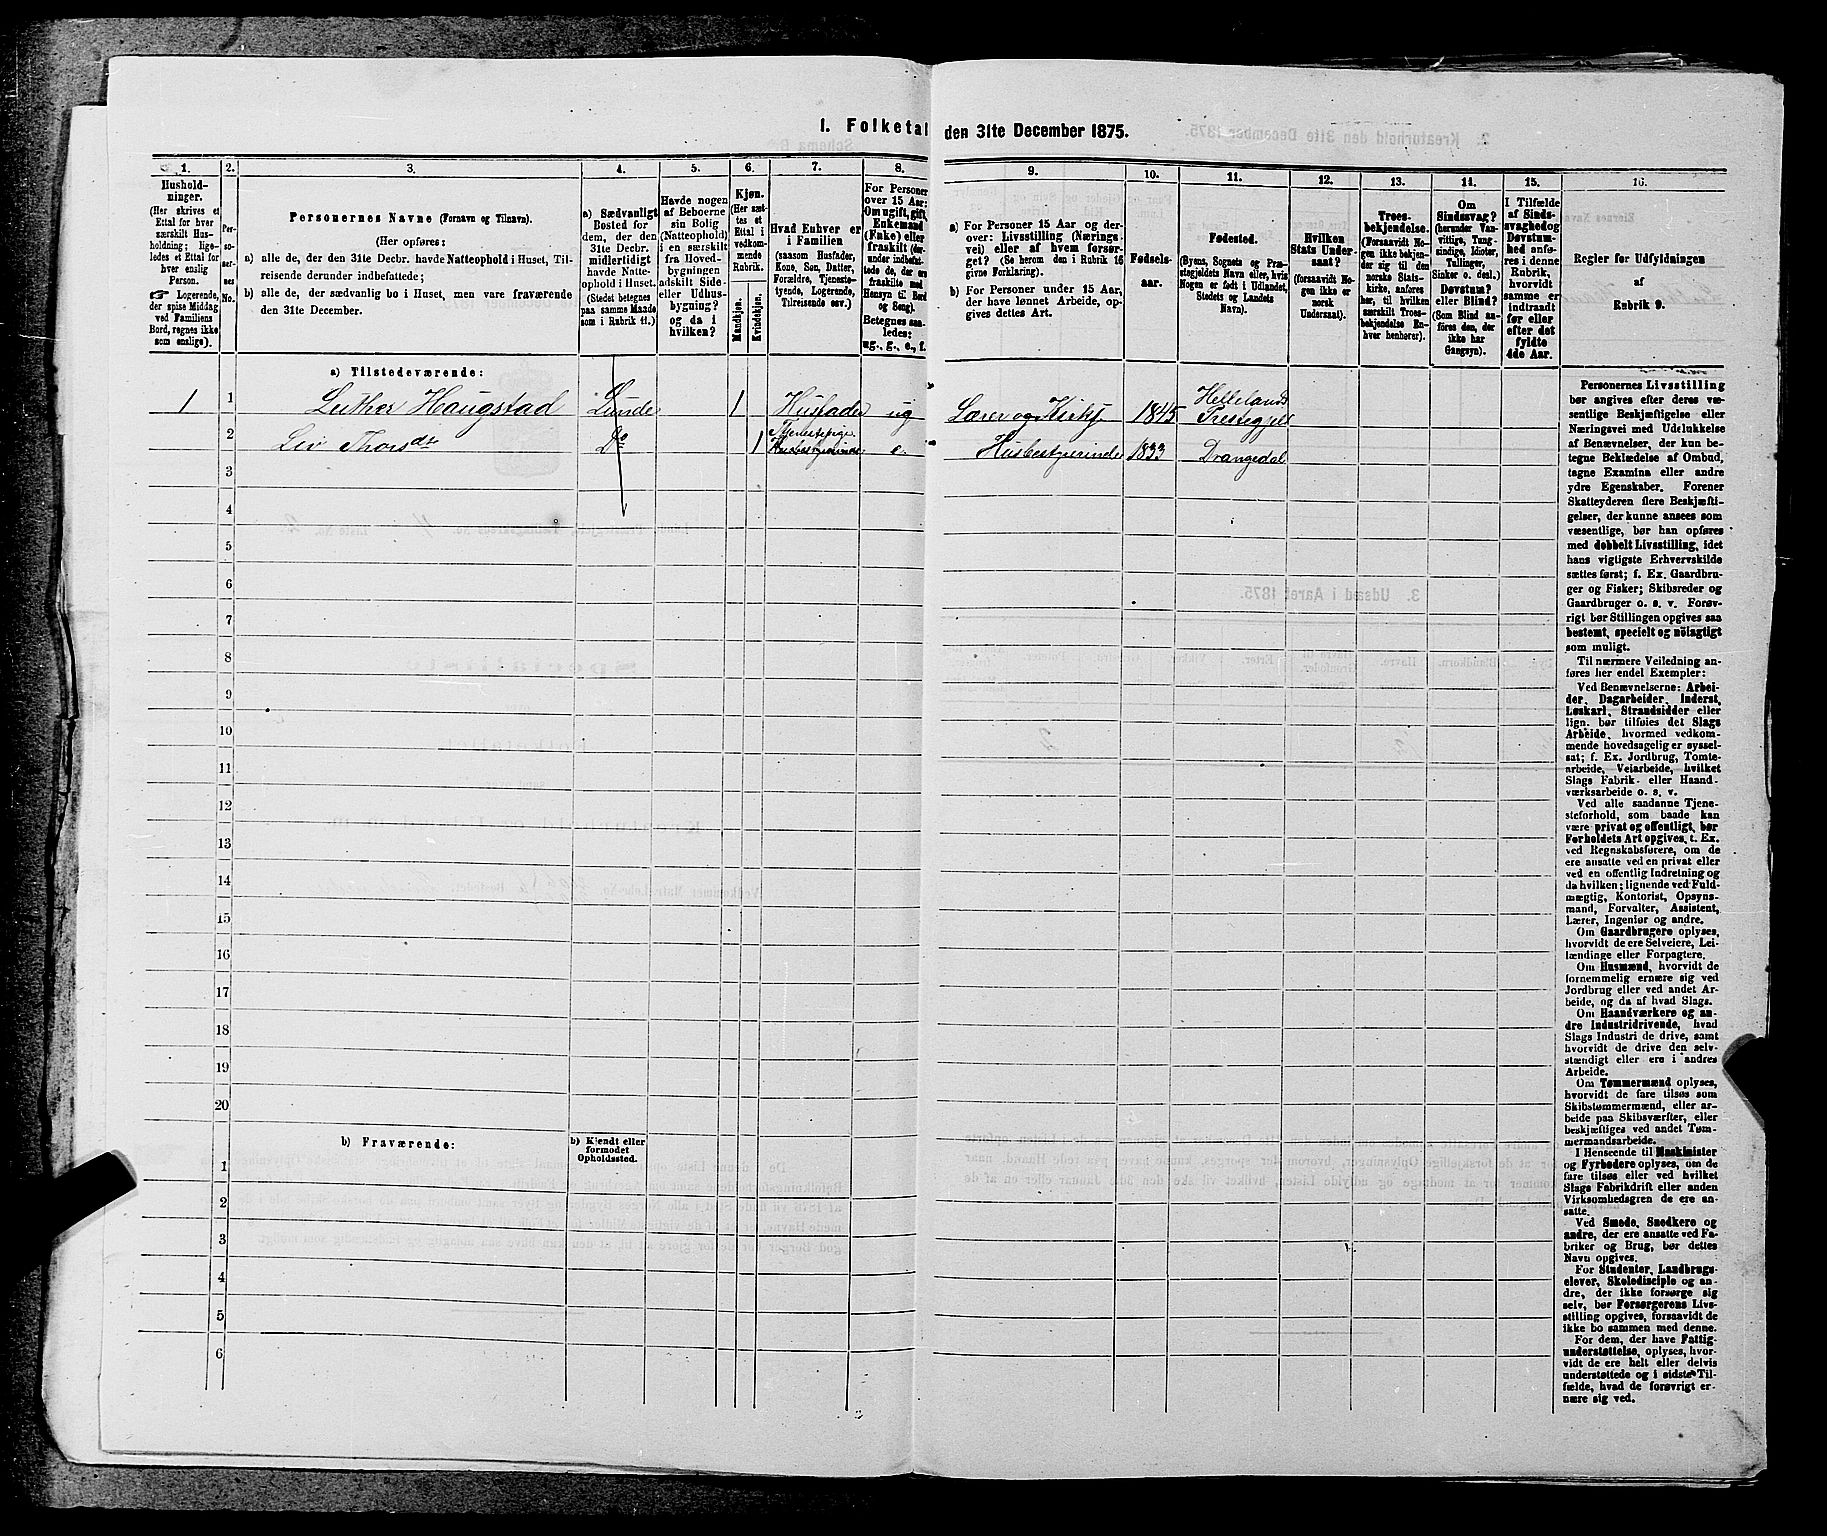 1. Folketal den 31te December 1875.
1.
Hushold-
ninger.
(Her skrives et
Ettal for hver
særskilt Hus-
holdning; lige-
ledes et Ettal for
hver enslig
Person.
☞ Logerende,
der spise Middag
ved Familiens
Bord, regnes ikke
som enslige).
2.
Per-
so-
ner-
nes
No.
3.
Personernes Navne (Fornavn og Tilnavn).
(Her opføres:
a) alle de, der den 31te Decbr. havde Natteophold i Huset, Til-
reisende derunder indbefattede;
b) alle de, der sædvanlig bo i Huset, men vare fraværende
den 31te December.
4.
a) Sædvanligt
Bosted for
dem, der den
31te Decbr.
midlertidigt
havde Natte-
ophold i Huset.
(Stedet betegnes
paa samme Maade
som i Rubrik 11.)
5.
Havde nogen
af Beboerne
sin Bolig
(Natteophold)
i en særskilt
fra Hoved-
bygningen
adskilt Side-
eller Udhus-
bygning?
og da i
hvilken?
6.
Kjøn.
(Her sæt-
tes et
Ettal i
vedkom-
mende
Rubrik.
Mandkjøn.
Kvindekjøn.
7.
Hvad Enhver er
i Familien
(saasom Husfader,
Kone, Søn, Datter,
Forældre, Tjeneste-
tyende, Logerende,
Tilreisende osv.)
8.
For Personer
over 15 Aar:
Om ugift, gift,
Enkemand
(Enke) eller
fraskilt (der-
under indbefat-
tede de, der ere
fraskilte med
Hensyn til Bord
og Seng).
Betegnes saa-
ledes:
ug., g., e., f.
9.
a) For Personer 15 Aar og der-
over: Livsstilling (Nærings-
vei) eller af hvem forsør-
get? (Se herom den i Rubrik 16
givne Forklaring).
b) For Personer under 15 Aar,
der have lønnet Arbeide, op-
gives dettes Art.
10.
Fødsels-
aar.
11.
Fødested.
(Byens, Sognets og Præ-
stegjeldets Navn eller, hvis
Nogen er født i Udlandet,
Stedets og Landets
Navn).
12.
Hvilken
Stats Under-
saat?
(forsaavidt No-
gen ikke er
norsk
Undersaat).
13.
Troes-
bekjendelse.
(Forsaavidt No-
gen ikke bekjen-
der sig til den
norske Stats-
kirke, anføres
her, til hvilken
særskilt Troes-
bekjendelse En-
hver henhører).
14.
Om
Sindssvag?
(herunder Van-
vittige, Tung-
sindige, Idioter,
Tullinger,
Sinker o. desl.)
Døvstum?
eller Blind?
(Som Blind an-
føres den, der
ikke har
Gangsyn).
15.
I Tilfælde
af Sinds-
svaghed og
Døvstum-
hed anfø-
res i denne
Rubrik,
hvorvidt
samme er
indtraadt
før eller
efter det
fyldte
4de Aar.
16.
Regler for Udfyldningen
af
Rubrik 9.
a) Tilstedeværende:
1 1 Luther Haugstad Lunde 1 Husfader ug Lærer og 1845 Hellelands Prestegjeld
2 Liv Thorsdtr Do 1 Tjenestepige Husbestyrerinde e. Husbestyerinde 1833 Drangedal
3
4
5
6
7
8
9
10
11
12
13
14
15
16
17
18
19
20
b) Fraværende:
b) Kjendt eller
formodet
Opholdssted.
1
2
3
4
5
6
Personernes Livsstilling
bør angives efter deres væ-
sentlige Beskjæftigelse eller
Næringsvei med Udelukkelse
af Benævnelser, der kun be-
tegne Beklædelse af Ombud,
tagne Examina eller andre
ydre Egenskaber. Forener
Skatteyderen flere Beskjæfti-
gelser, der kunne ansees som
væsentlige, bør han opføres
med dobbelt Livsstilling, idet
hans vigtigste Erhvervskilde
sættes først; f. Ex. Gaardbru-
ger og Fisker; Skibsreder og
Gaardbruger o. s. v. Forøv-
rigt bør Stillingen opgives saa
bestemt, specielt og nøiagtigt
som muligt.
Til nærmere Veiledning an-
føres her endel Exempler:
Ved Benævnelserne: Arbei-
der, Dagarbeider, Inderst,
Løskarl, Strandsidder eller
lign. bør tilføies det Slags
Arbeide, hvormed vedkom-
mende hovedsagelig er syssel-
sat; f. Ex. Jordbrug, Tomte-
arbeide, Veiarbeide, hvilket
Slags Fabrik- eller Haand-
værksarbeide o. s. v.
Ved alle saadanne Tjene-
steforhold, som baade kan
være privat og offentligt, bør
Forholdets Art opgives, t. Ex.
ved Regnskabsførere, om de
ere ansatte ved en privat eller
ved en offentlig Indretning og
da hvilken; lignende ved Fuld-
mægtig, Kontorist, Opsyns-
mand, Forvalter, Assistent,
Lærer, Ingeniør og andre.
Om Gaardbrugere oplyses,
hvorvidt de ere Selveiere, Lei-
lændinge eller Forpagtere.
Om Husmænd, hvorvidt de
fornemmelig ernære sig ved
Jordbrug eller ved andet Ar-
beide, og da af hvad Slags.
Om Haandværkere og an-
dre Industridrivende, hvad
Slags Industri de drive, samt
hvorvidt de drive den selv-
stændigt eller ere i andres
Arbeide.
Om Tømmermænd oplyses,
hvorvidt de fare tilsøs som
Skibstømmermænd, eller ar-
beide paa Skibsværfter, eller
beskjæftiges ved andet Tøm-
mermandsarbeide.
I Henseende til Maskinister
og Fyrbødere oplyses, om de
fare tilsøs eller ved hvilket
Slags Fabrikdrift eller anden
Virksomhedsgren de ere an-
satte.
Ved Smede, Snedkere og
andre, der ere ansatte ved Fa-
briker og Brug, bør dettes
Navn opgives.
For Studenter, Landbrugs-
elever, Skoledisciple og an-
dre, der ikke forsørge sig
selv, bør Forsørgerens Livs-
stilling opgives, forsaavidt de
ikke bo sammen med denne.
For dem, der have Fattig-
understøttelse, oplyses, hvor-
vidt de ere helt eller delvis
understøttede og i sidste Til-
fælde, hvad de forøvrigt er-
nære sig ved.